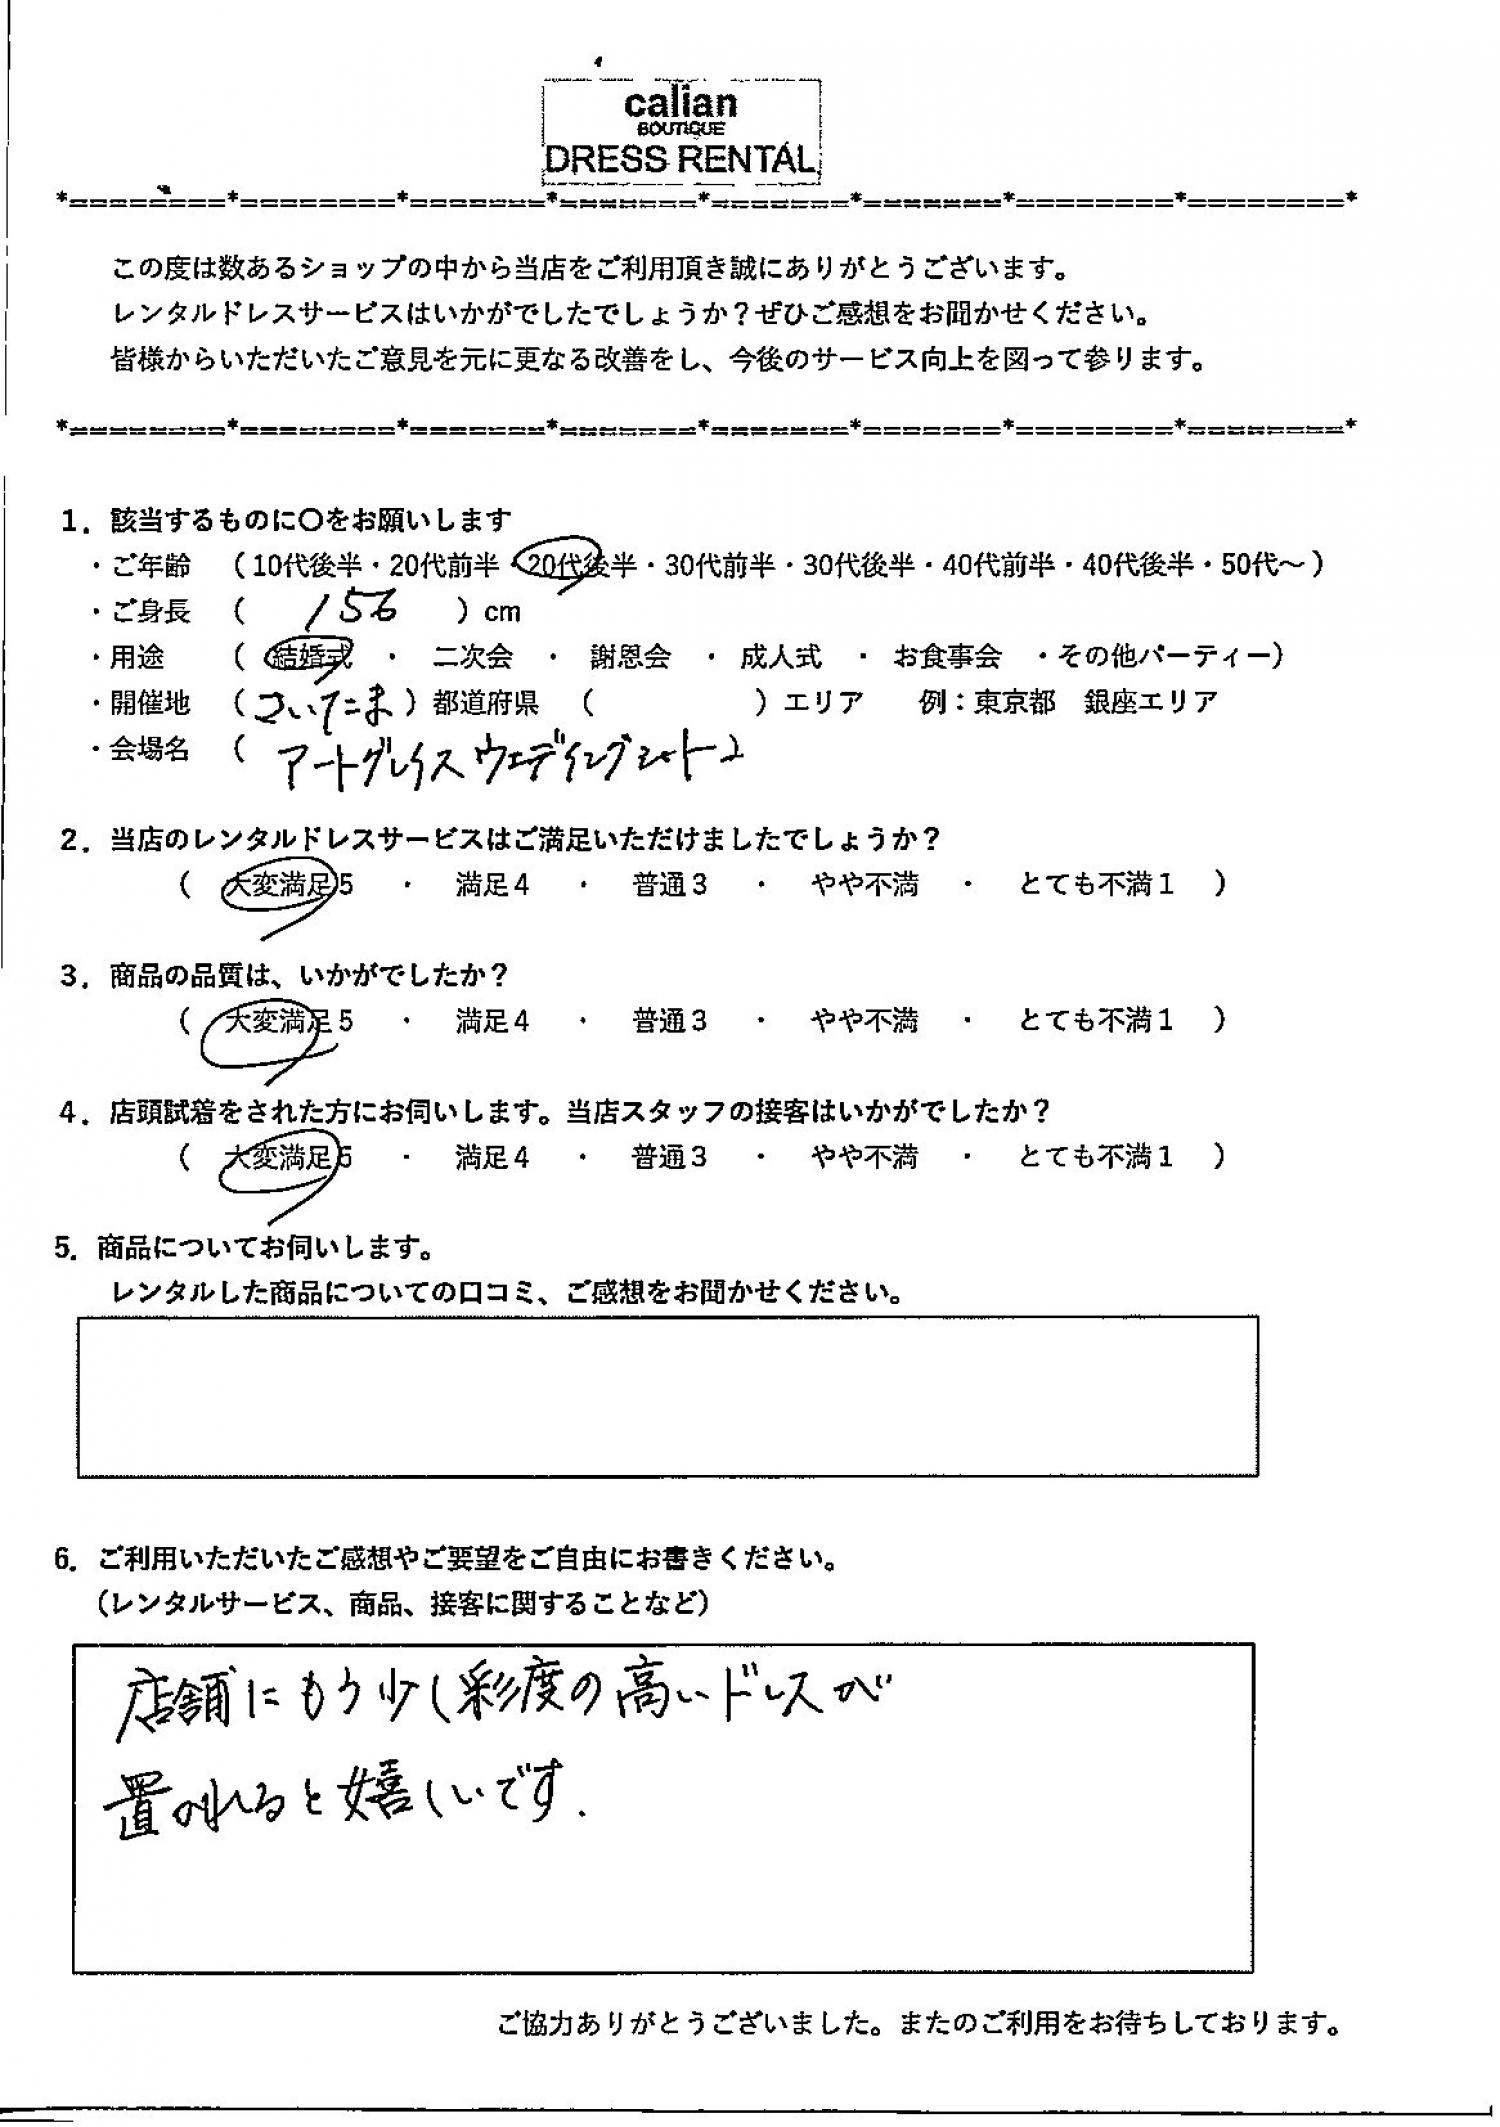 calian
BOUTIQUE
DRESS RENTAL
*========*========*=======*=======*=======*=======*========*========*
この度は数あるショップの中から当店をご利用頂き誠にありがとうございます。
レンタルドレスサービスはいかがでしたでしょうか？ぜひご感想をお聞かせください。
皆様からいただいたご意見を元に更なる改善をし、今後のサービス向上を図って参ります。
*========*========*=======*=======*=======*=======*========*========*
1．該当するものに〇をお願いします
・ご年齢 （10代後半・20代前半・20代後半・30代前半・30代後半・40代前半・40代後半・50代～）
・ご身長 （ 156 ）cm
・用途 （ 結婚式 ・ 二次会 ・ 謝恩会 ・ 成人式 ・ お食事会 ・その他パーティー）
・開催地 （さいたま）都道府県 （ ）エリア 例：東京都 銀座エリア
・会場名 （ アートグレイスウエディングシャトー
2．当店のレンタルドレスサービスはご満足いただけましたでしょうか？
（ 大変満足5 ・ 満足4 ・ 普通3 ・ やや不満 ・ とても不満1 ）
3．商品の品質は、いかがでしたか？
（ 大変満足5 ・ 満足4 ・ 普通3 ・ やや不満 ・ とても不満1 ）
4．店頭試着をされた方にお伺いします。当店スタッフの接客はいかがでしたか？
（ 大変満足5 ・ 満足4 ・ 普通3 ・ やや不満 ・ とても不満1 ）
5．商品についてお伺いします。
レンタルした商品についての口コミ、ご感想をお聞かせください。
6．ご利用いただいたご感想やご要望をご自由にお書きください。
（レンタルサービス、商品、接客に関することなど）
店舗にもう少し彩度の高いドレスが
置かれると嬉しいです.
ご協力ありがとうございました。またのご利用をお待ちしております。